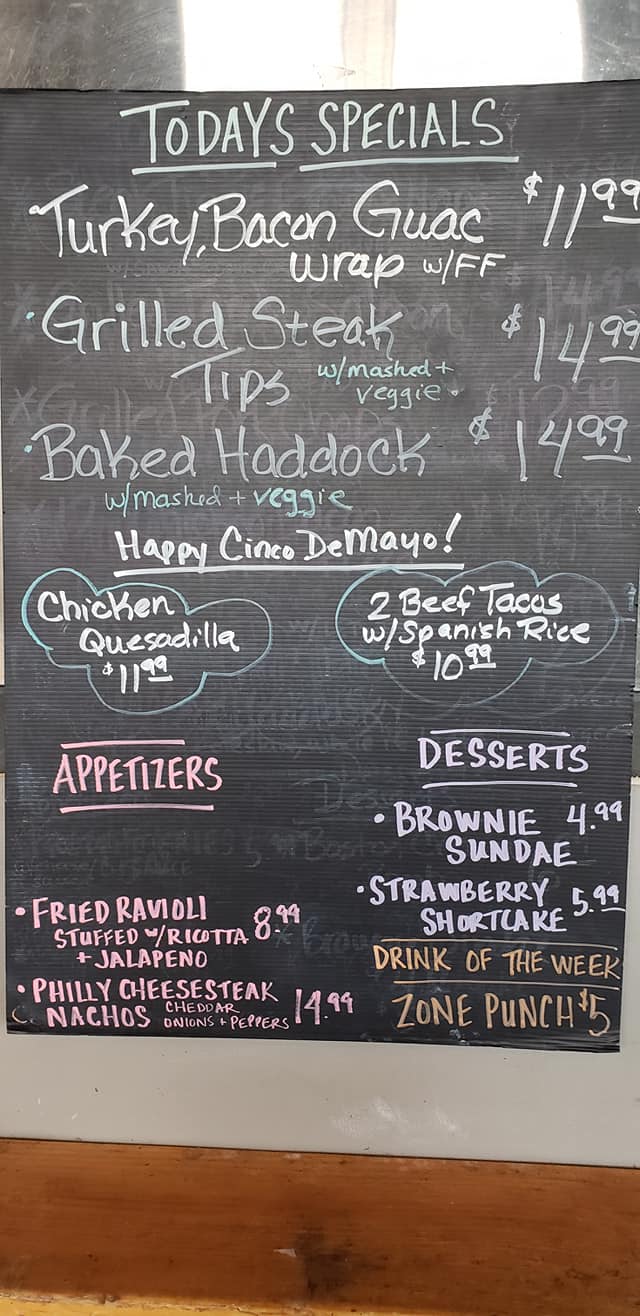 TODAYS SPECIALS
Turkey, Bacon Guac $11.99
wrap w/FF
· Grilled Steak $14.99
Tips w/mashed +
veggie.
· Baked Haddock $14.99
w/mashed + veggie
Happy Cinco DeMayo!
Chicken
Quesadilla
$11.99
2 Beef Tacos
w/Spanish Rice
$10.99
APPETIZERS
• FRIED RAVIOLI 8.99
STUFFED W/RICOTTA
+ JALAPENO
• PHILLY CHEESESTEAK
NACHOS CHEDDAR 14.99
ONIONS + PEPPERS
DESSERTS
• BROWNIE 4.99
SUNDAE
• STRAWBERRY 5.99
SHORTCAKE
DRINK OF THE WEEK
ZONE PUNCH $5